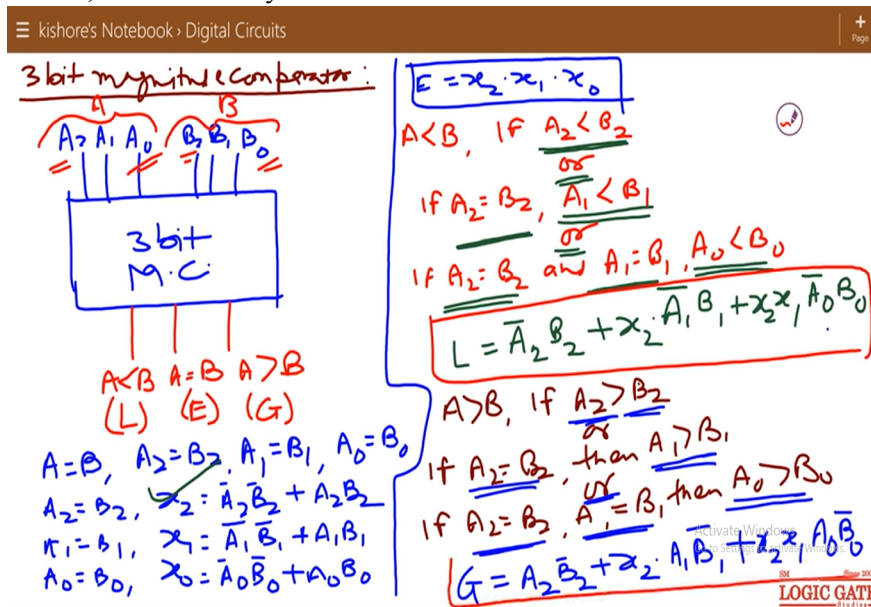 kishore's Notebook › Digital Circuits
+
Page
3 bit magnitude comparator :
A B
A₂ A₁ A₀ B₂ B₁ B₀
3 bit
M.C
A<B A=B A>B
(L) (E) (G)
A=B, A₂=B₂, A₁=B₁, A₀=B₀
A₂=B₂, x₂ = A̅₂B̅₂ + A₂B₂
A₁=B₁, x₁ = A̅₁B̅₁ + A₁B₁
A₀=B₀, x₀ = A̅₀B̅₀ + A₀B₀
E = x₂·x₁·x₀
A<B, IF A₂<B₂
or
if A₂=B₂, A₁<B₁
or
if A₂=B₂ and A₁=B₁, A₀<B₀
L = A̅₂B₂ + x₂·A̅₁B₁ + x₂x₁A̅₀B₀
A>B, if A₂>B₂
or
if A₂=B₂, then A₁>B₁
or
if A₂=B₂, A₁=B₁ then A₀>B₀
G = A₂B̅₂ + x₂·A₁B₁ + x₂x₁A₀B̅₀
Activate Windows
Go to Settings to activate Windows.
SM Since 200
LOGIC GATE
Studies